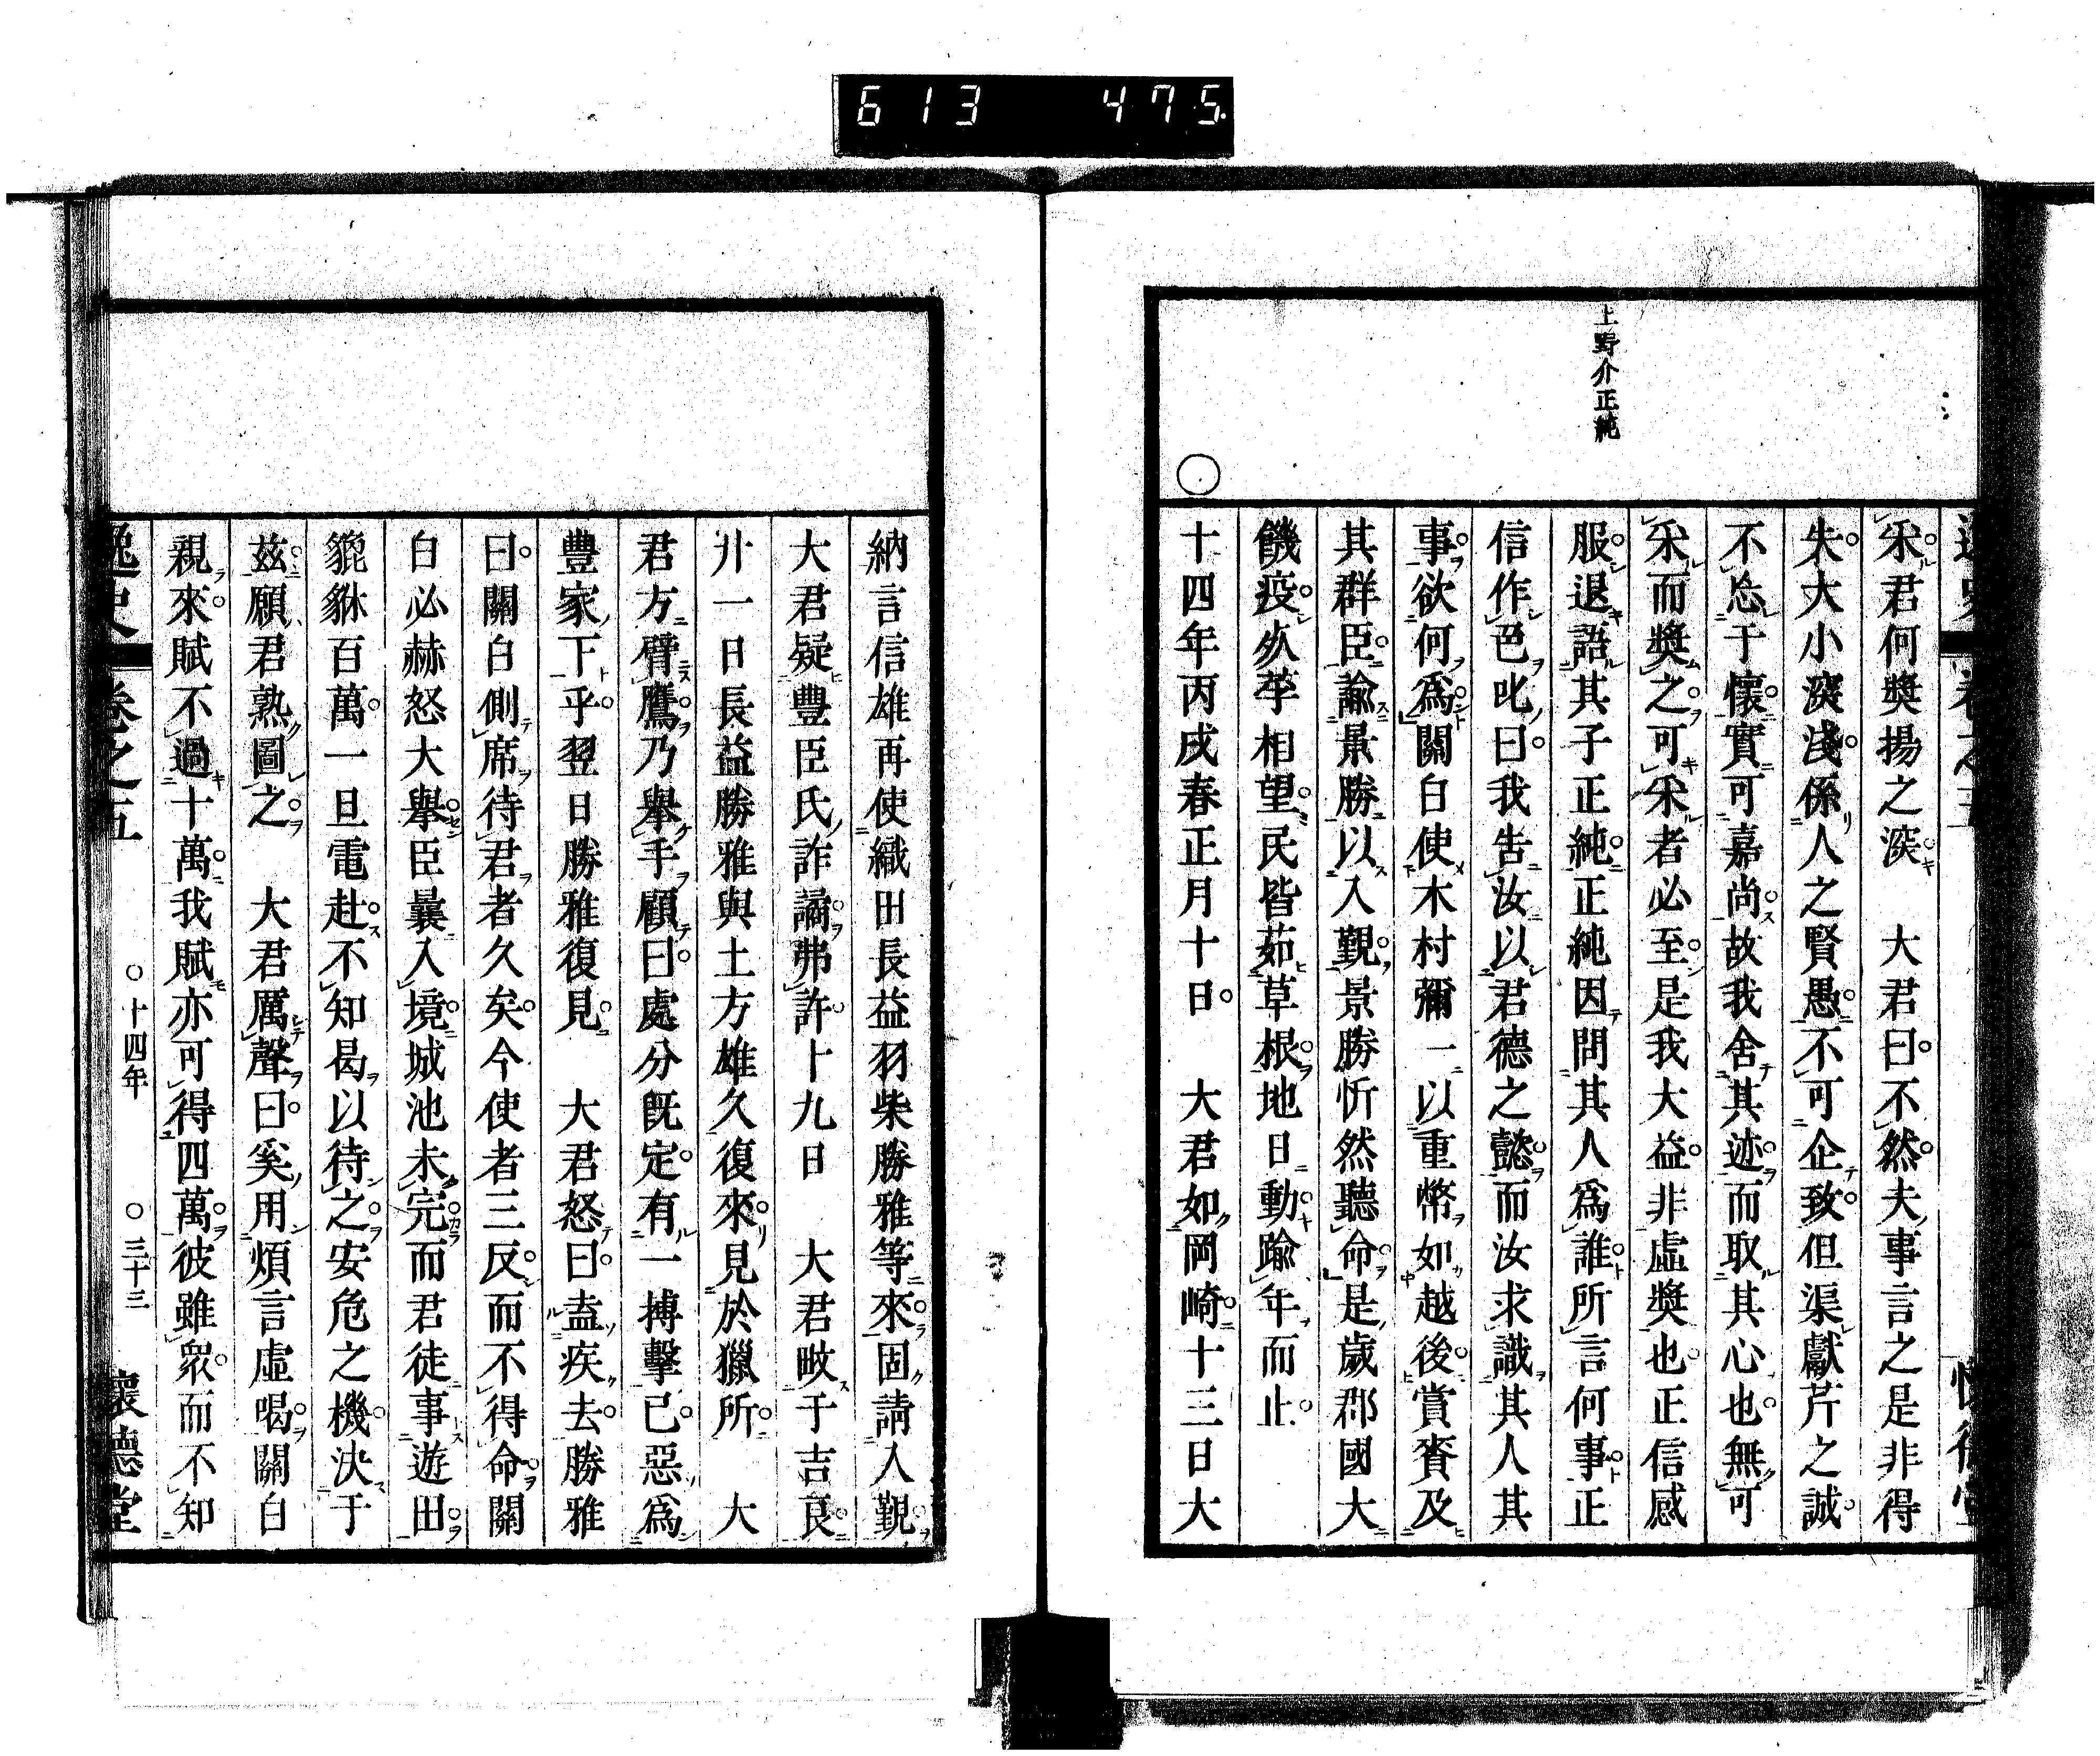 613 475
上野介正純
采君何奬揚之深 大君曰不然夫事言之是非得
失大小深淺係人之賢愚不可企致但渠獻芹之誠
不忘于懷實可嘉尚故我舍其迹而取其心也無可
采而奬之可采者必至是我大益非虛奬也正信感
服退語其子正純正純因問其人爲誰所言何事正
信作色叱曰我吿汝以君德之懿而汝求識其人其
事欲何爲關白使木村彌一以重幣如越後賞賚及
其群臣諭景勝以入覲景勝忻然聽命是歲郡國大
饑疫殍莩相望民皆茹草根地日動踰年而止
○
十四年丙戌春正月十日 大君如岡崎十三日大
納言信雄再使織田長益羽柴勝雅等來固請入覲
大君疑豐臣氏詐謫弗許十九日 大君畋于吉良
廾一日長益勝雅與土方雄久復來見於獵所 大
君方臂鷹乃擧手顧曰處分旣定有一搏擊已惡爲
豐家下乎翌日勝雅復見 大君怒曰盍疾去勝雅
曰關白側席待君者久矣今使者三反而不得命關
白必赫怒大擧臣曩入境城池未完而君徒事遊田
貔貅百萬一旦電赴不知曷以待之安危之機決于
茲願君熟圖之 大君厲聲曰奚用煩言虛喝關白
親來賦不過十萬我賦亦可得四萬彼雖衆而不知
逸史 卷之五 ○十四年 ○三十三 懷德堂